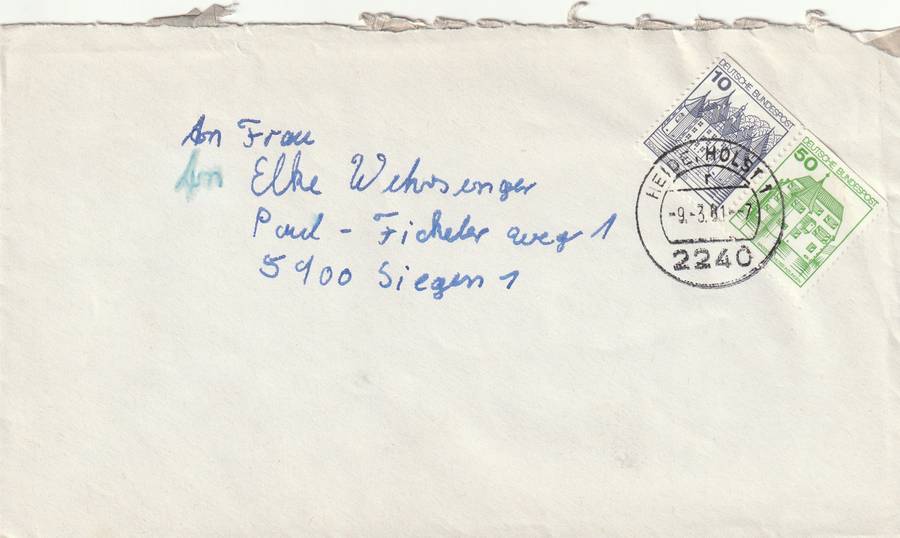 An Frau
An Elke Wehrsenger
Paul-Fickeler weg 1
5900 Siegen 1
10
DEUTSCHE BUNDESPOST
50
DEUTSCHE BUNDESPOST
HEIDE, HOLST 1
r
-9.-3.81-7
2240